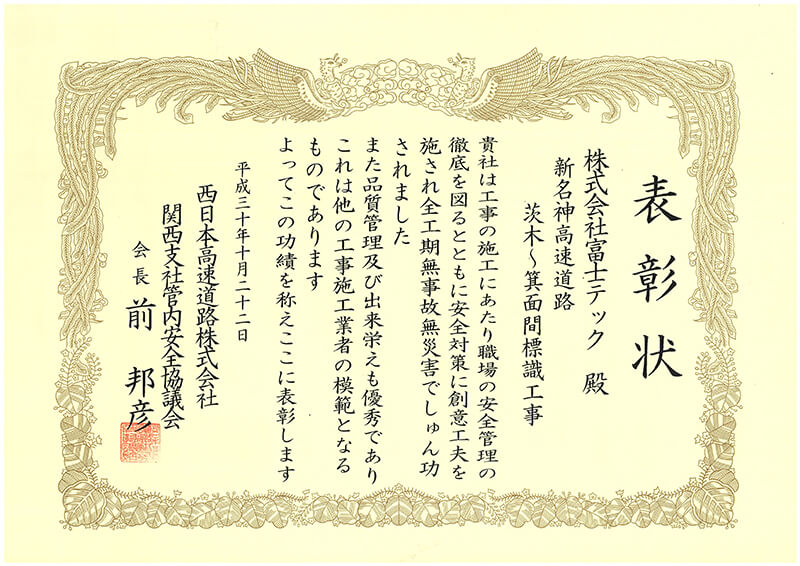 表彰状
株式会社富士テック 殿
新名神高速道路
茨木～箕面間標識工事
貴社は工事の施工にあたり職場の安全管理の
徹底を図るとともに安全対策に創意工夫を
施され全工期無事故無災害でしゅん功
されました
また品質管理及び出来栄えも優秀であり
これは他の工事施工業者の模範となる
ものであります
よってこの功績を称えここに表彰します
平成三十年十月二十二日
西日本高速道路株式会社
関西支社管内安全協議会
会長 前 邦彦